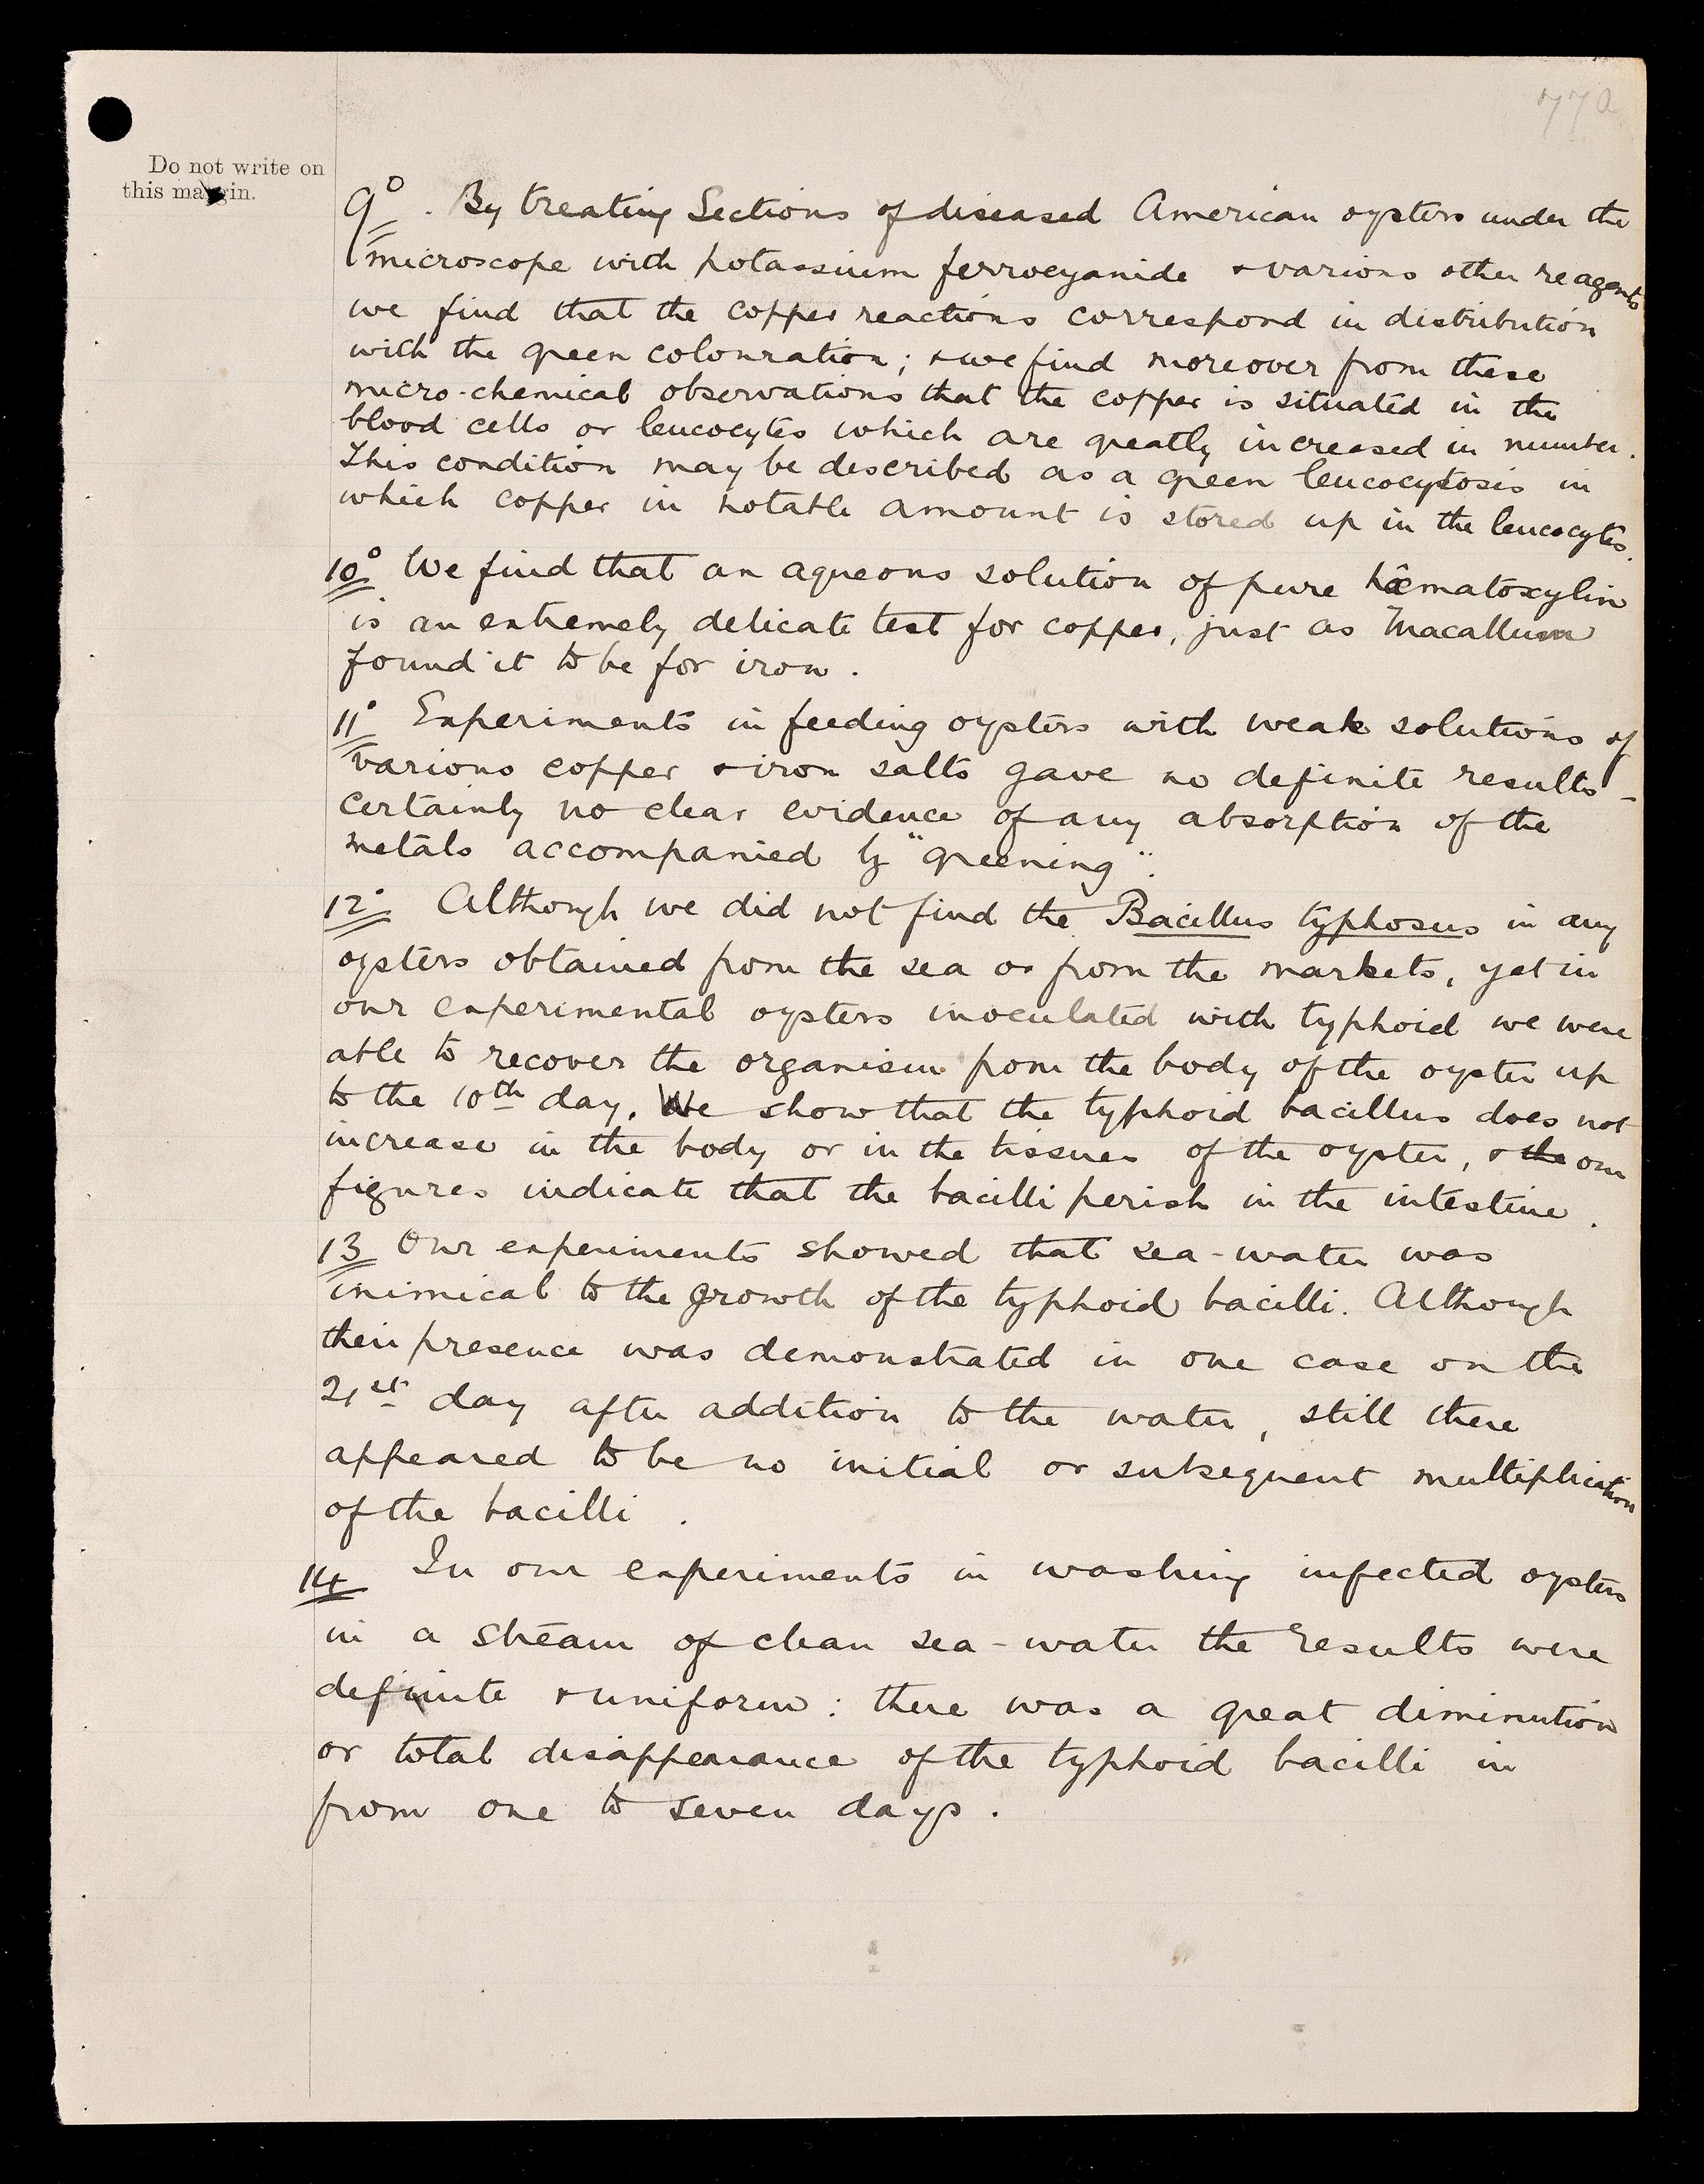 77a
Do not write on
this margin.
9°. By treating Sections of diseased American oysters under the
microscope with potassium ferrocyanide & various other reagents
we find that the copper reactions correspond in distribution
with the green colouration; & we find moreover from these
micro-chemical observations that the copper is situated in the
blood cells or leucocytes which are greatly increased in number.
This condition may be described as a green leucocytosis in
which copper in notable amount is stored up in the leucocytes.
10° We find that an aqueous solution of pure hæmatoxylin
is an extremely delicate test for copper, just as Macallum
found it to be for iron.
11° Experiments in feeding oysters with weak solutions of
various copper & iron salts gave no definite results -
certainly no clear evidence of any absorption of the
metals accompanied by "greening".
12° Although we did not find the Bacillus typhosus in any
oysters obtained from the sea or from the markets, yet in
our experimental oysters inoculated with typhoid we were
able to recover the organism from the body of the oyster up
to the 10th day. We show that the typhoid bacillus does not
increase in the body or in the tissues of the oyster, & the our
figures indicate that the bacilli perish in the intestine.
13 Our experiments showed that sea-water was
inimical to the growth of the typhoid bacilli. Although
their presence was demonstrated in one case on the
21st day after addition to the water, still there
appeared to be no initial or subsequent multiplication
of the bacilli.
14 In our experiments in washing infected oysters
in a stream of clean sea-water the results were
definite & uniform: there was a great diminution
or total disappearance of the typhoid bacilli in
from one to seven days.